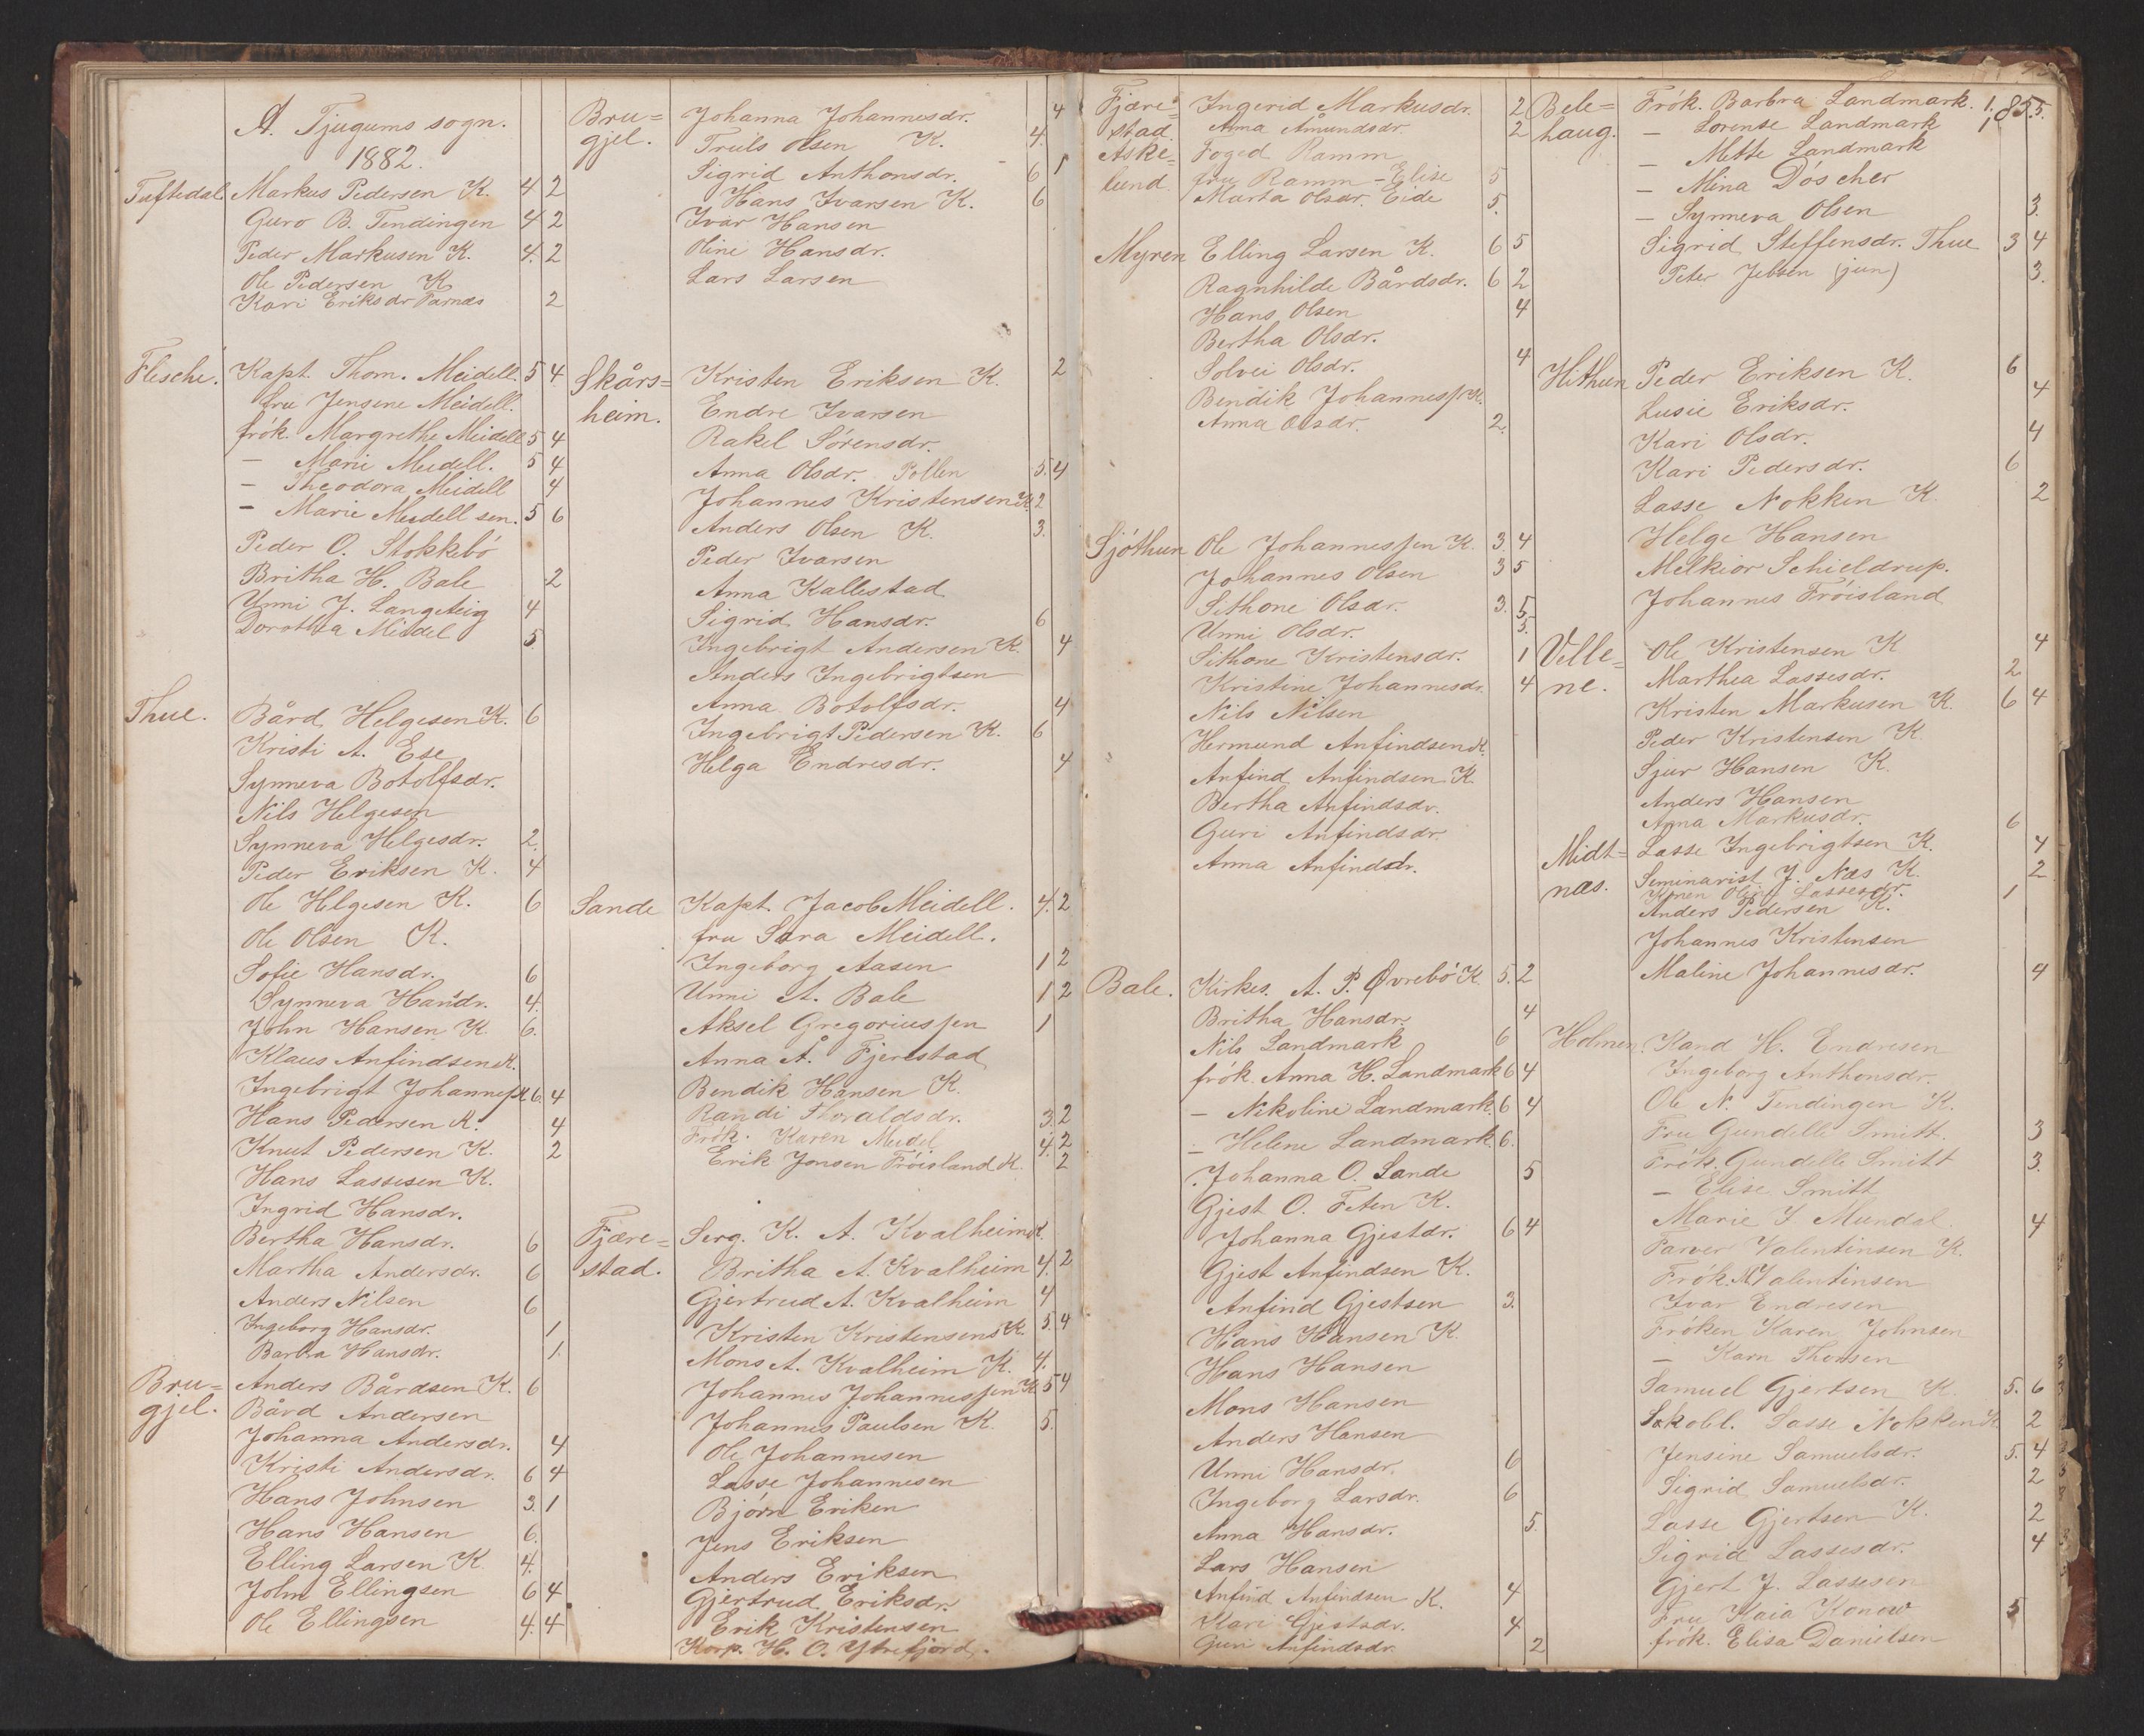 A. Tjugums sogn.
1882.
Tuftedal Markus Pedersen K. 4 2
Guro B. Tendingen 4 2
Peder Markusen K. 4. 2
Ole Pedersen K
Kari Eriksdr Farnæs 2
Flesche. Kapt. Thom. Meidell. 5 4
Fru Jensene Meidell.
frök. Margrethe Meidell 5 4
— Marie Meidell. 5 4
— Theodora Meidell 4
— Marie Meidell sen. 5 6
Peder O. Stokkebö
Britha H. Bale 2
Unni J. Langeteig 4
Dorothea Meidel 5
Thue. Bård Helgesen K. 6
Kristi A. Ese
Synneva Botolfsdr.
Nils Helgesen
Synneva Helgesdr. 2.
Peder Eriksen K. 4
Ole Helgesen K. 6
Ole Olsen K.
Sofie Hansdr. 6
Synneva Hansdr. 4.
John Hansen K. 6.
Klaus Anfindsen K.
Ingebrigt Johannes K. 6. 4
Hans Pedersen K. 4
Knut Pedersen K. 2
Hans Lassesen K.
Ingrid Hansdr.
Bertha Hansdr. 6
Martha Andersdr. 6
Anders Nilsen 6
Ingeborg Hansdr. 1
Barbra Hansdr. 1.
Bru=
gjel. Anders Bårdsen K. 6
Bård Andersen
Johanna Andersdr. 4
Kristi Andersdr. 6 4
Hans Johnsen 3. 1
Hans Hansen 6.
Elling Larsen K. 4.
John Ellingsen 6 4
Ole Ellingsen 4. 4
Bru=
gjel. Johanna Johannesdr. 4
Truls Olsen K. 4.
Sigrid Anthonsdr. 6 1
Hans Ivarsen K. 6
Ivar Hansen
Oline Hansdr.
Lars Larsen
Skårs=
heim. Kristen Eriksen K. 2
Endre Ivarsen
Rakel Sörensdr.
Anna Olsdr. Pollen 5. 4
Johannes Kristensen K. 2
Anders Olsen K. 3.
Peder Ivarsen
Anna Kallestad
Sigrid Hansdr. 6
Ingebrigt Andersen K. 4
Anders Ingebrigtsen
Anna Botolfsdr. 4
Ingebrigt Pedersen K. 6
Helga Endresdr. 4
Sande Kapt. Jacob Meidell. 4. 2
fru Sara Meidell.
Ingeborg Aasen 1 2
Unni A. Bale 1 2
Aksel Gregoriussen 1
Anna Å. Fjerestad
Bendik Hansen K.
Randi Haraldsdr. 3. 2
Frök. Karen Meidel 4. 2
Erik Jonsen Fröisland K. 2
Fjære=
stad. Serg. K. A. Kvalheim K.
Britha A. Kvalheim 4. 2
Gjertrud A. Kvalheim 4
Kristen Kristensens K. 5. 4
Mons A. Kvalheim K. 4.
Johannes Johannessen K 5 4
Johannes Paulsen K. 5.
Ole Johannesen
Lasse Johannesen
Björn Eriken
Jens Eriksen
Anders Eriksen
Gjertrud Eriksdr.
Erik Kristensen
Korp. H. O. Ytrefjord.
Fjære=
stad. Ingerid Markusdr. 2
Anna Åmundsdr. 2
Aske=
lund. Foged Ramm
fru Ramm - Elise 5
Marta Olsdr. Eide 5.
Myren Elling Larsen K. 6 5
Ragnhilde Bårdsdr. 6 2
Hans Olsen 4
Bertha Olsdr.
Solvei Olsdr. 4
Bendik Johannes K.
Anna Olsdr. 2.
Sjöthun Ole Johannessen K. 3. 4
Johannes Olsen 3 5
Sithone Olsdr. 3. 5
Unni Olsdr. 5.
Sithone Kristensdr. 1
Kristine Johannesdr. 4
Nils Nilsen
Hermund Anfindsen K.
Anfind Anfindsen K.
Bertha Anfindsdr.
Guri Anfindsdr.
Anna Anfindsdr.
Bale. Kirkes. A. P. Øvrebö K. 5. 2
Britha Hansdr. 4
Nils Landmark 6
frök. Anna H. Landmark 6 4
— Nikoline Landmark. 6 4
— Helene Landmark. 6.
Johanna O. Sande 5
Gjest O. Feten K.
Johanna Gjestdr. 6 4
Gjest Anfindsen K.
Anfind Gjestsen 3.
Hans Hansen K.
Hans Hansen
Mons Hansen
Anders Hansen
Unni Hansdr. 6
Ingeborg Larsdr. 6
Anna Hansdr. 5.
Lars Hansen
Anfind Anfindsen K. 4
Kari Gjestsdr. 4
Guri Anfindsdr. 2
Bele=
haug. Frök. Barbra Landmark. 1. 85 5.
— Lorense Landmark 1
— Mette Landmark
— Mina Döscher
— Synneva Olsen 3.
Sigrid Steffensdr. Thue 3 4
Peter Jebsen (jun) 3.
Hithun Peder Eriksen K. 6
Lusie Eriksdr. 4
Kari Olsdr. 4
Kari Pedersdr. 6
Lasse Nokken K. 2
Helge Hansen
Melkior Schieldrup.
Johannes Fröisland
Velle=
ne. Ole Kristensen K 4
Marthea Lassesdr. 2
Kristen Markusen K. 6 4
Peder Kristensen K.
Sjur Hansen K.
Anders Hansen
Anna Markusdr. 6
Midt=
næs. Lasse Ingebrigtsen K. 4
Seminarist J. Næs K. 2
Konen Oline Lassesdr. 1
Anders Pedersen K.
Johannes Kristensen
Maline Johannesdr. 4
Holmen. Kand H. Endresen
Ingeborg Anthonsdr.
Ole N. Tendingen K.
Fru Gundelle Smitt. 3
Frök. Gundelle Smitt 3.
— Elise Smitt
Marie J. Mundal. 4
Farver Valentinsen K.
Frök. M Valentinsen
Ivar Endresen
Fröken Karen Johnsen
— Karn Thorsen
Samuel Gjertsen K. 5. 6
Skobl. Lasse Nokken K 2
Jensine Samuelsdr. 5. 4
Sigrid Samuelsdr. 2
Lasse Gjertsen K. 2
Sigrid Lassesdr. 4
Gjert J. Lassesen
Fru Kaia Konow 5
frök. Elisa Danielsen